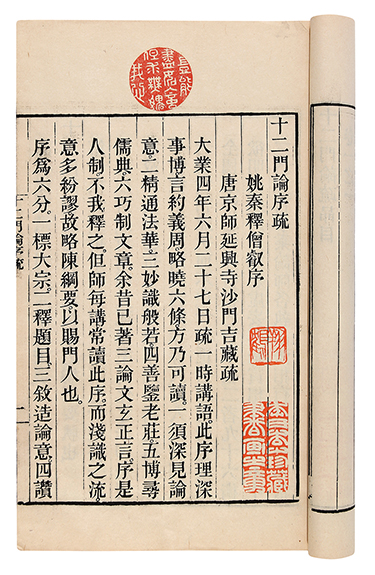 十二門論序疏
姚秦釋僧叡序
唐京師延興寺沙門吉藏疏
大業四年六月二十七日疏一時講語。此序理深
事博言約義周略曉六條方乃可讀。一須深見論
意。二精通法華。三妙識般若四善鑒老莊五博尋
儒典。六巧制文章。余昔已著三論文玄正言序。是
人制不我釋之。但師每講常讀此序。而淺識之流。
意多紛謬故略陳綱要以賜門人也。
序爲六分。一標大宗。二釋題目三敘造論意四讚
十二門論序疏
一